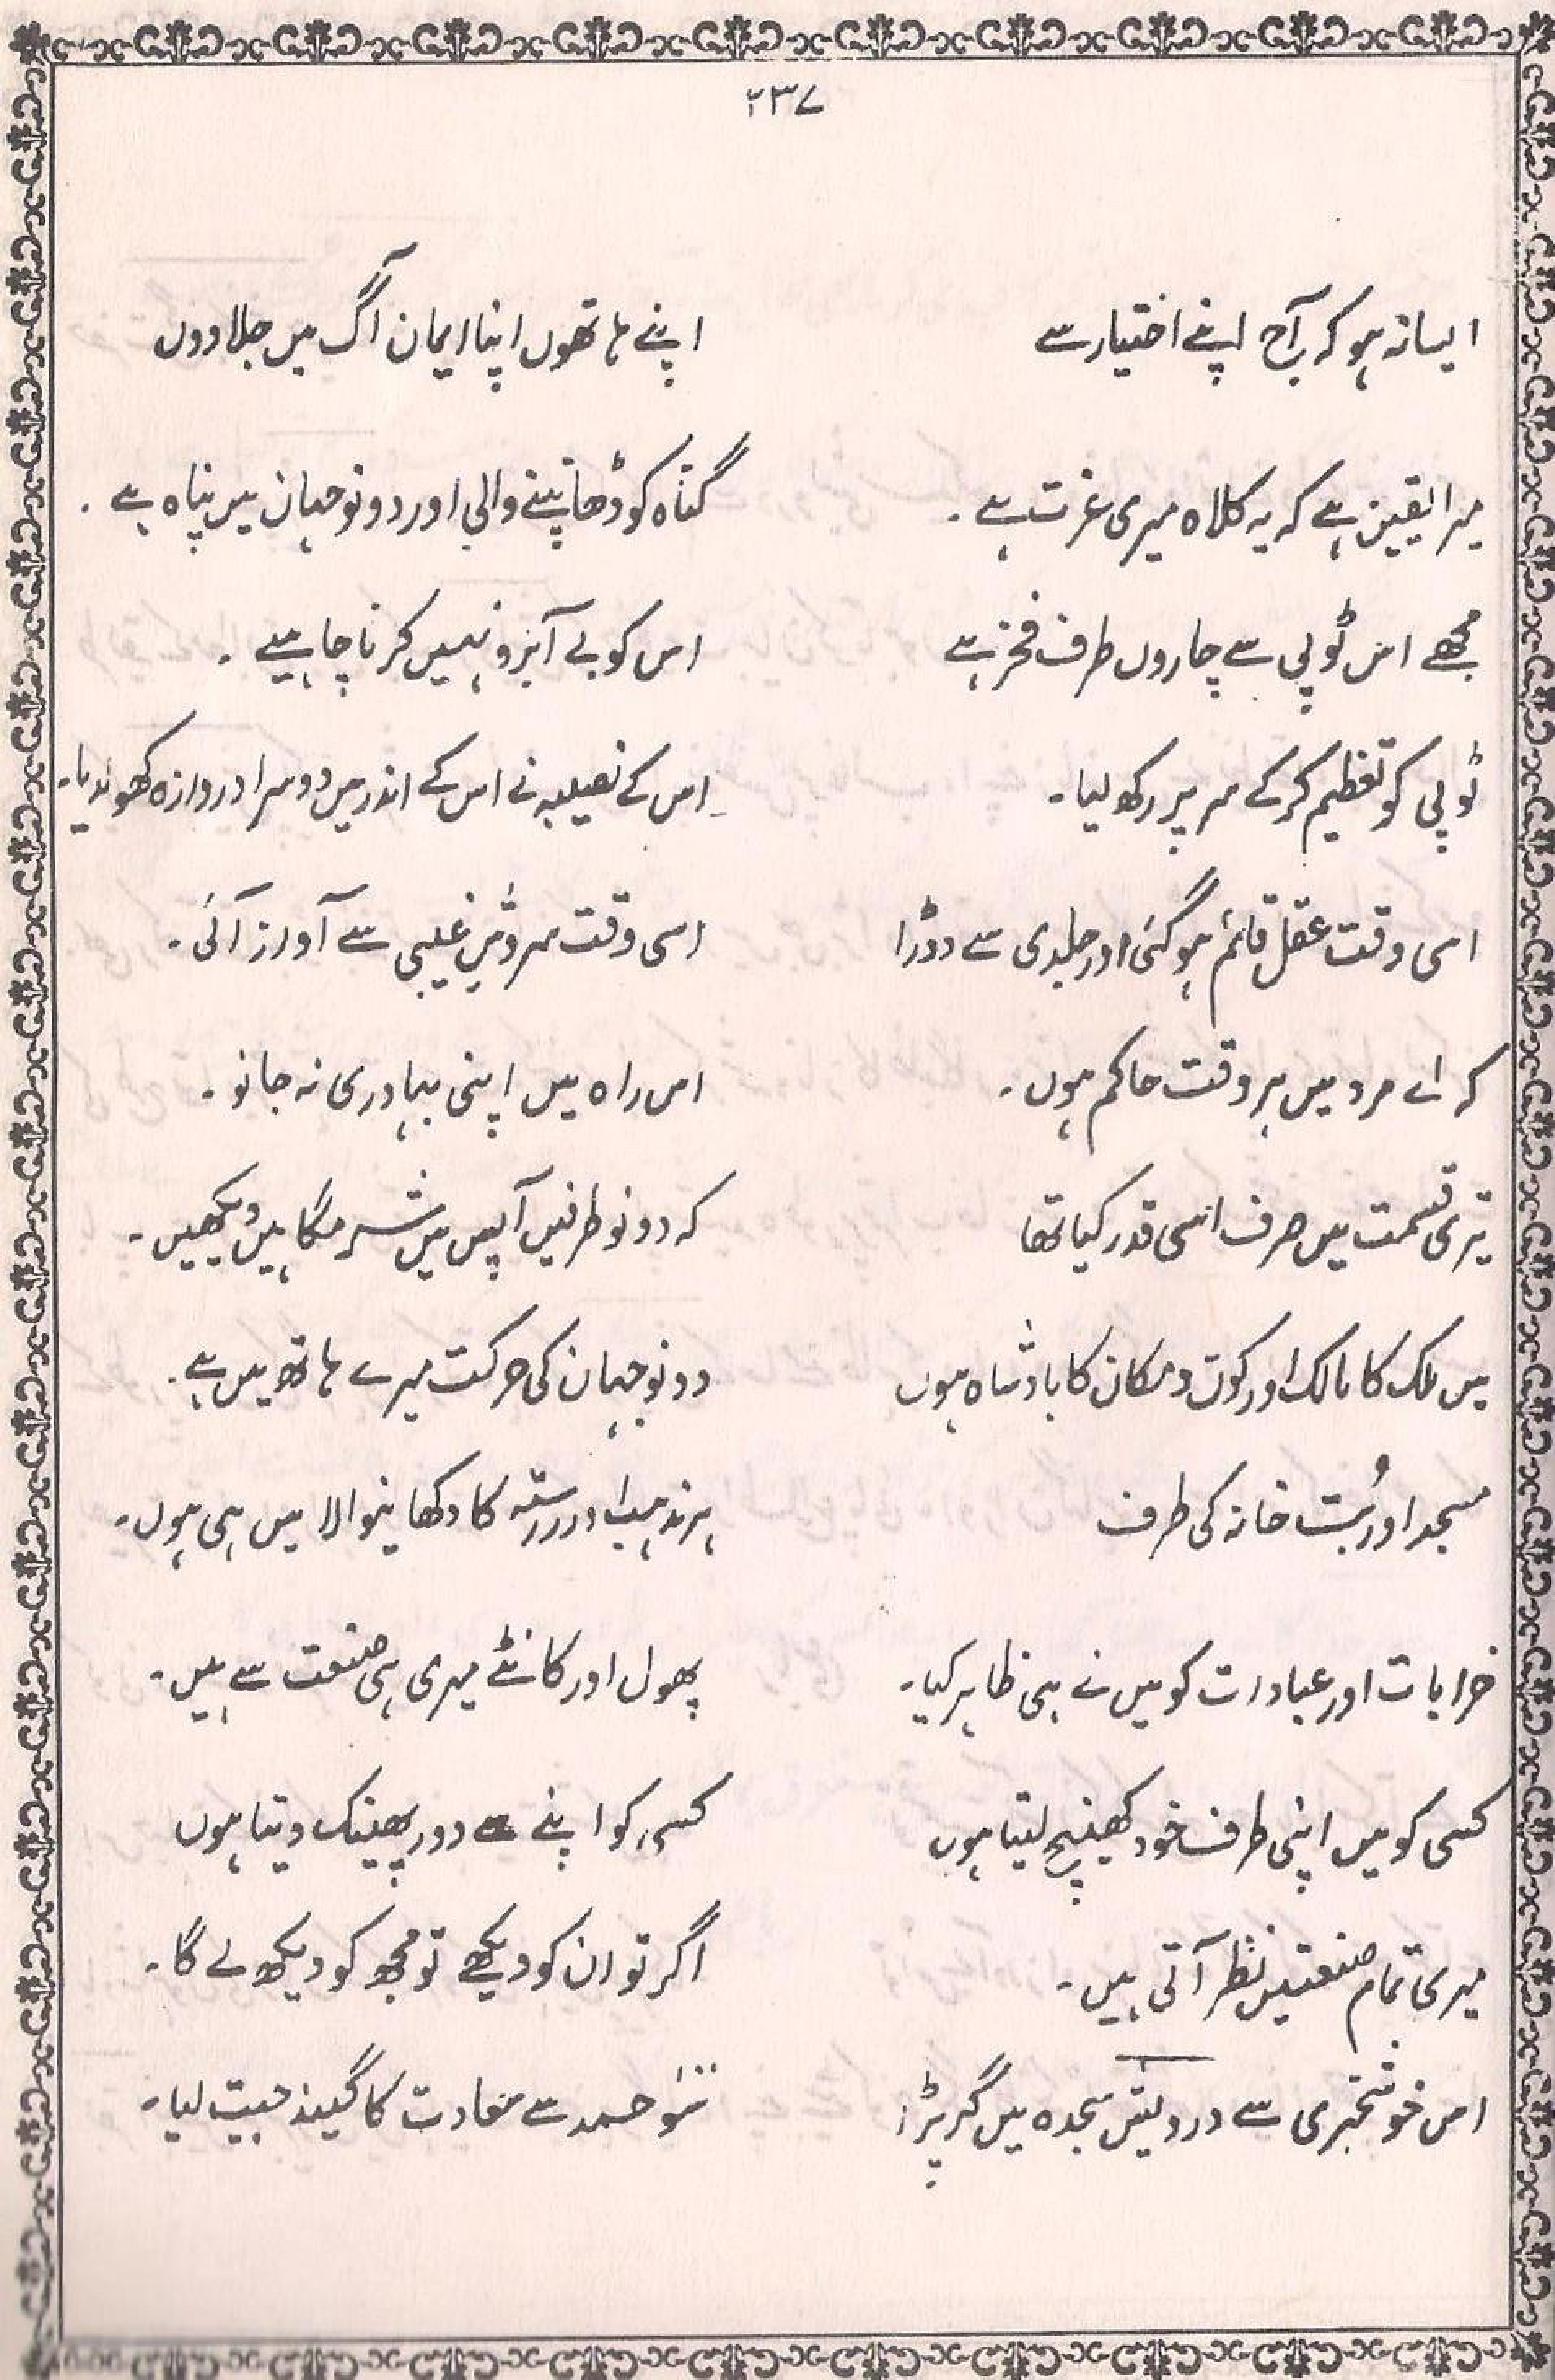 ۲۳۷
ایسا نہ ہو کہ آج اپنے اختیار سے اپنے ہاتھوں اپنا ایمان آگ میں جلا دوں
میرا یقین ہے کہ یہ کلاہ میری عزت ہے۔ گناہ کو ڈھانپنے والی اور دونو جہان میں پناہ ہے۔
مجھے اس ٹوپی سے چاروں طرف فخر ہے اس کو بے آبرو نہیں کرنا چاہیے۔
ٹوپی کو تعظیم کر کے سر پر رکھ لیا۔ اس کے نصیبہ نے اس کے اندر میں دوسرا دروازہ کھولدیا۔
اسی وقت عقل قائم ہو گئی اور جلدی سے دوڑا اسی وقت سروش غیبی سے آواز آئی۔
کہ اے مرد میں ہر وقت حاکم ہوں۔ اس راہ میں اپنی بہادری نہ جانو۔
تیری قسمت میں صرف اسی قدر کیا تھا کہ دونو طرفیں آپس میں شرمگاہیں دیکھیں۔
میں ملک کا مالک اور کون و مکان کا بادشاہ ہوں دونو جہان کی حرکت میرے ہاتھ میں ہے۔
مسجد اور بُت خانہ کی طرف ہر مذہب اور رستہ کا دکھانیوالا میں ہی ہوں۔
خرابات اور عبادات کو میں نے ہی ظاہر کیا۔ پھول اور کانٹے میری ہی صنعت سے ہیں۔
کسی کو میں اپنی طرف خود کھینچ لیتا ہوں کسی کو اپنے سے دور پھینک دیتا ہوں
میری تمام صنعتیں نظر آتی ہیں۔ اگر تو ان کو دیکھے تو مجھ کو دیکھ لے گا۔
اس خوشخبری سے درویش سجدہ میں گر پڑا حمد سے سعادت کا گیند جیت لیا۔